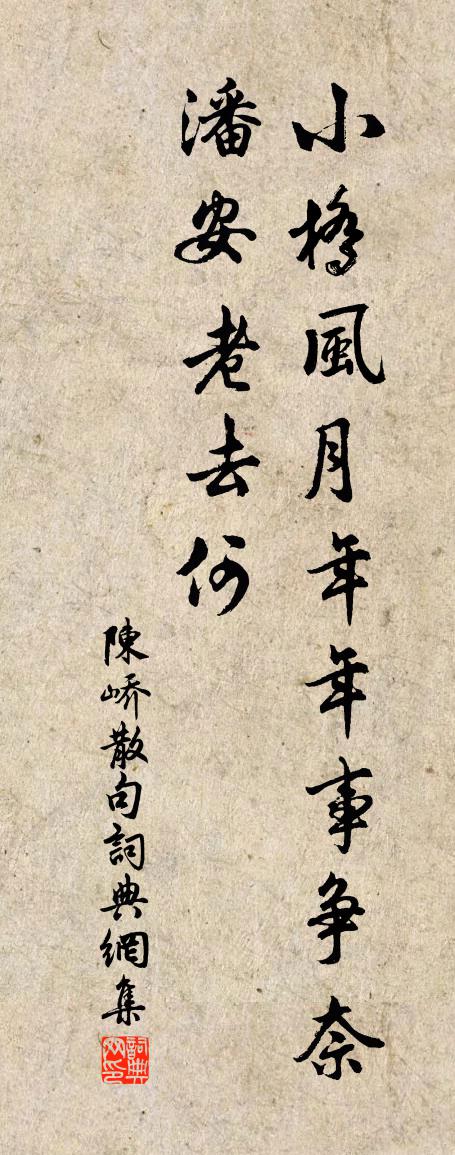 小橋風月年年事争奈
潘安老去何
陳嶠散句詞典網集
詞典网印